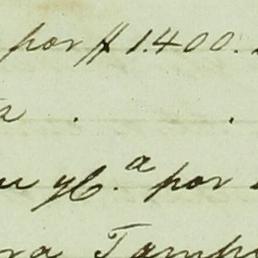 por $ 1.400.
a . .
u y C.ª por
ra Tamp